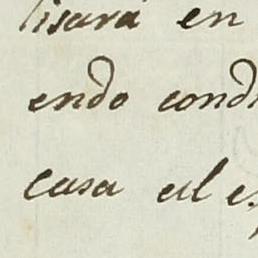 lisara en
endo cond
casa el e